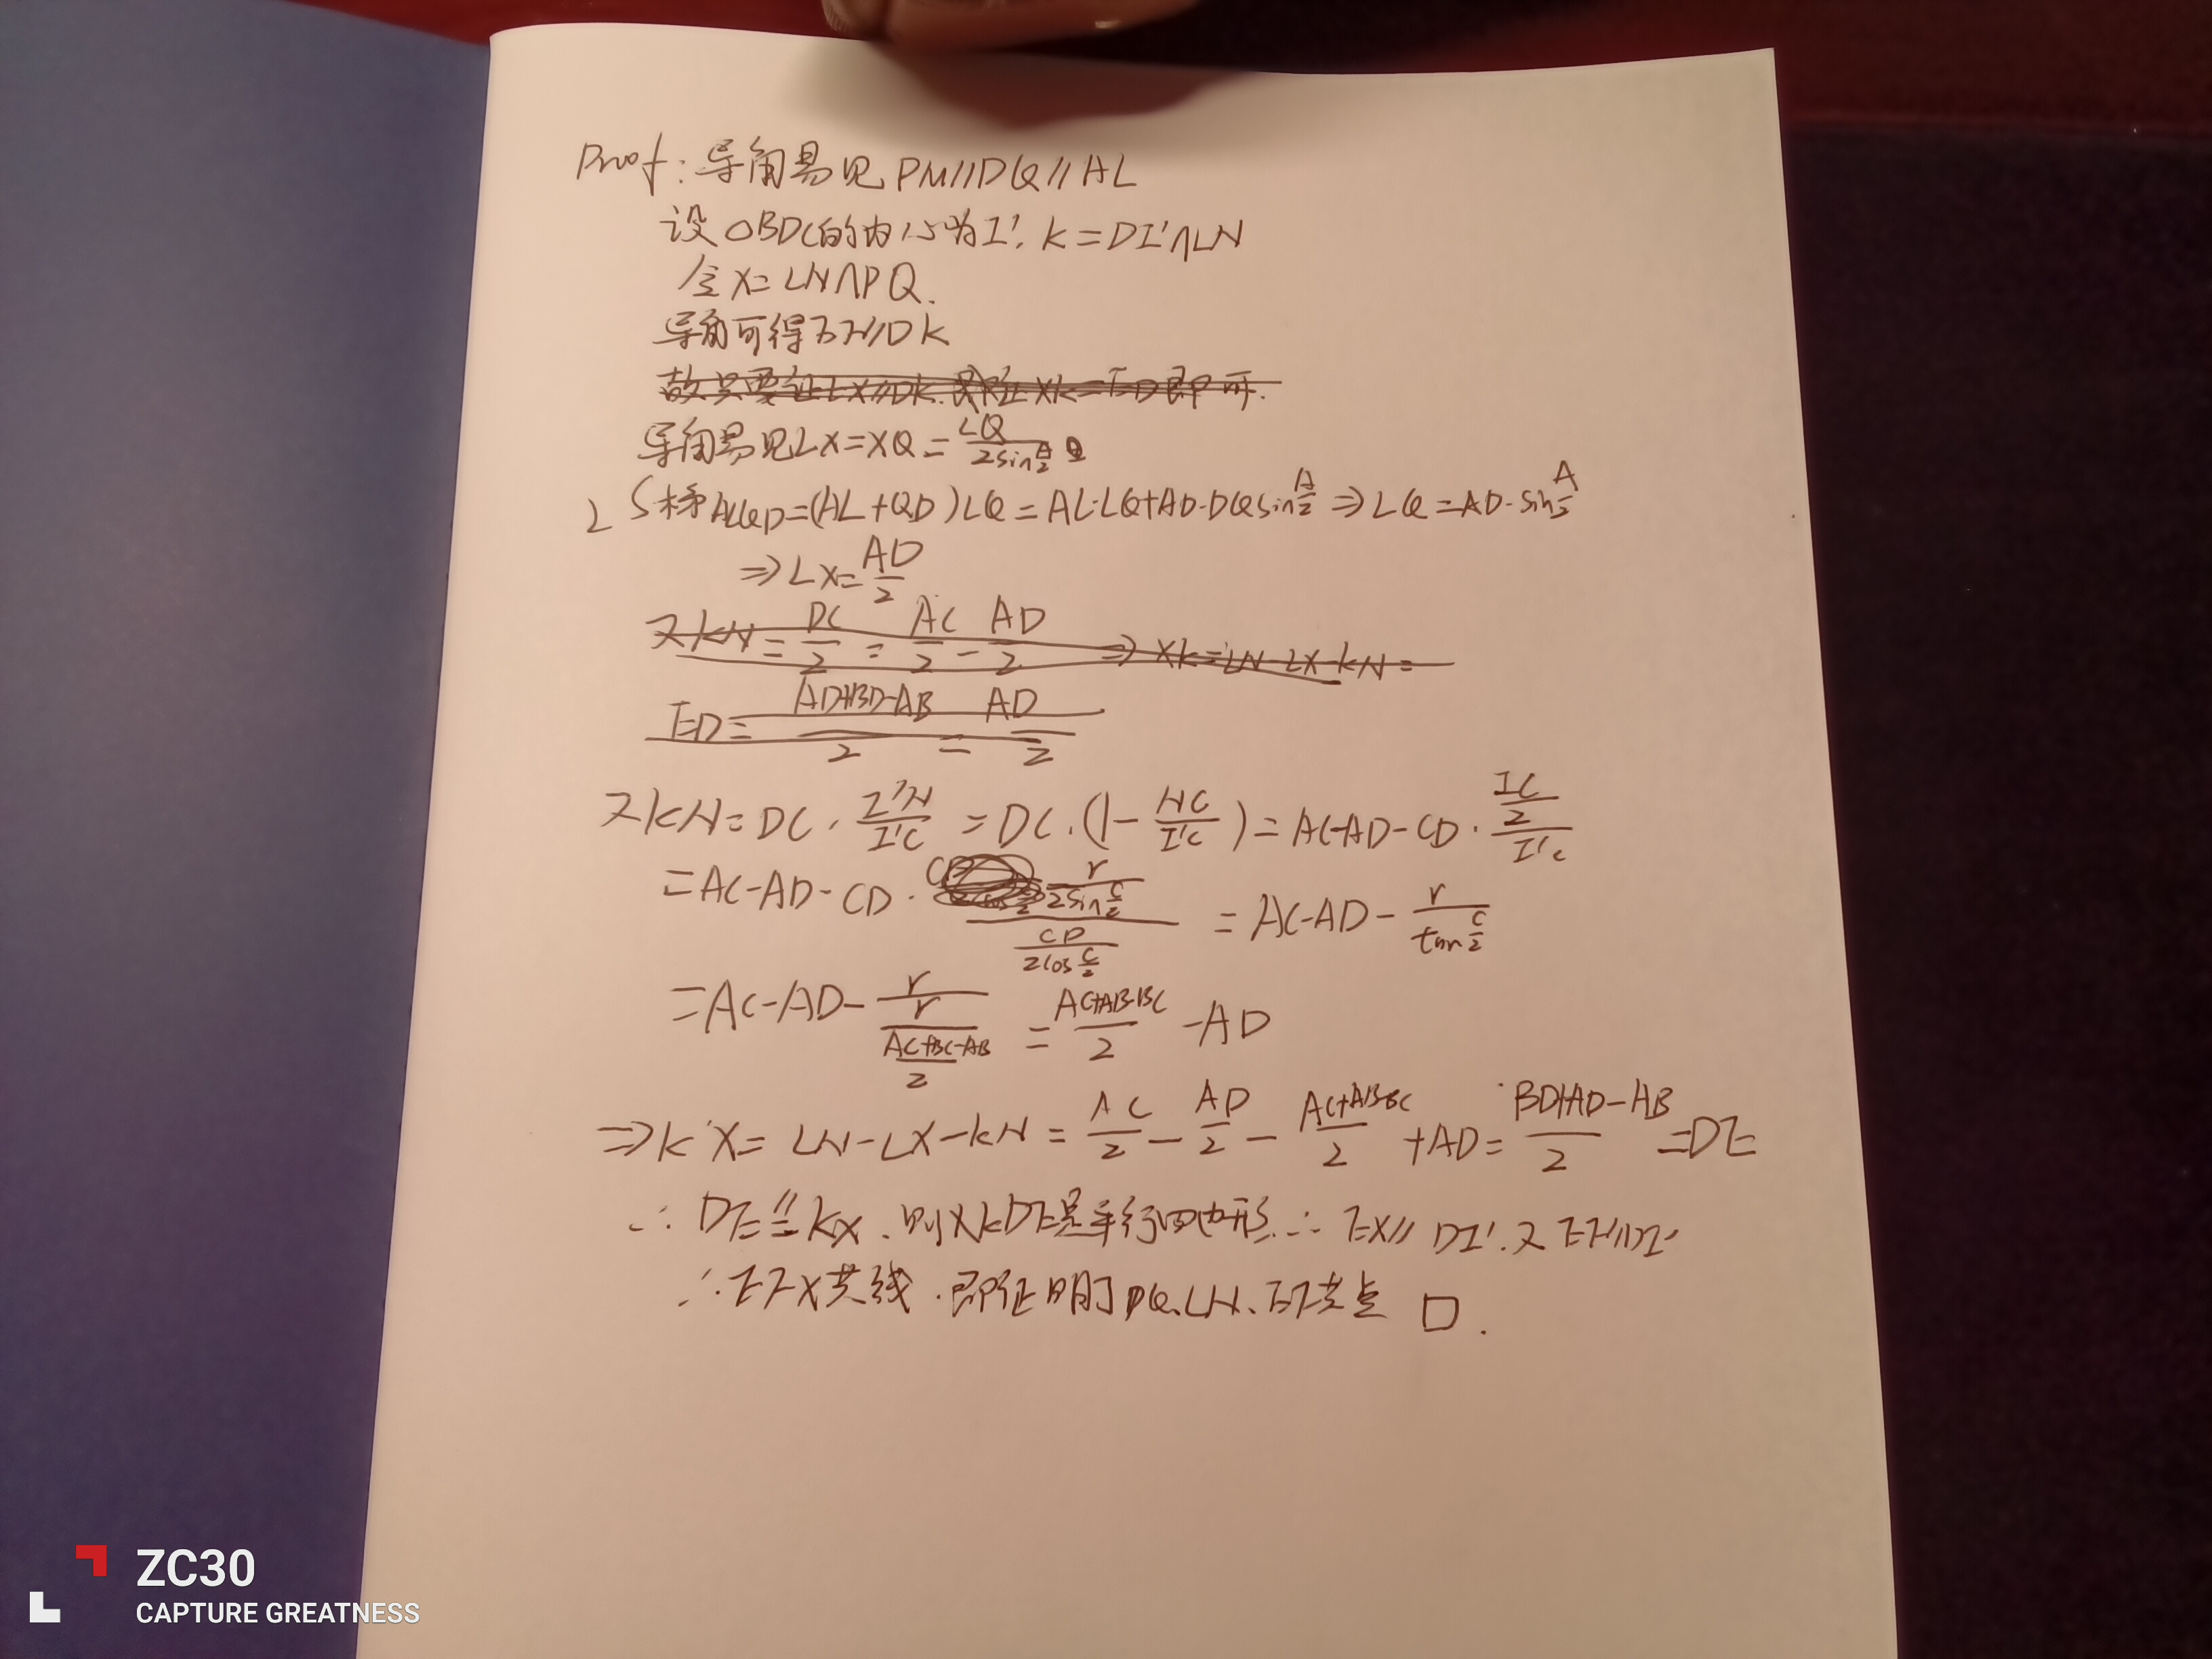 Proof: 导角易见 PM//DQ//AL
设△BDC的内心为I'. K=DI'∩LN
令X=LN∩PQ.
导角可得EF//DK
故只要证EX//DK. 即证XK=ED即可.
导角易见LX=XQ=\frac{LQ}{2sin\frac{A}{2}}
2S梯ALQD=(AL+QD)LQ=AL·LQ+AD·DQsin\frac{A}{2}⇒LQ=AD·sin\frac{A}{2}
⇒LX=\frac{AD}{2}
又KN=\frac{DC}{2}=\frac{AC}{2}-\frac{AD}{2}⇒XK=LN-LX-KN=
ED=\frac{AD+BD-AB}{2}=\frac{AD}{2}
又KN=DC·\frac{I'N}{I'C}=DC·(1-\frac{NC}{I'C})=AC-AD-CD·\frac{\frac{IC}{2}}{I'C}
=AC-AD-CD·\frac{\frac{r}{2sin\frac{C}{2}}}{\frac{CD}{2cos\frac{C}{2}}}=AC-AD-\frac{r}{tan\frac{C}{2}}
=AC-AD-\frac{r}{\frac{r}{\frac{AC+BC-AB}{2}}}=\frac{AC+AB-BC}{2}-AD
⇒KX=LN-LX-KN=\frac{AC}{2}-\frac{AD}{2}-\frac{AC+AB-BC}{2}+AD=\frac{BD+AD-AB}{2}=DE
∴DE∥=KX.则XKDE是平行四边形.∴EX//DI'.又EF//DI'
∴EFX共线.即证明了PQ、LN、EF共点 □.
ZC30
CAPTURE GREATNESS